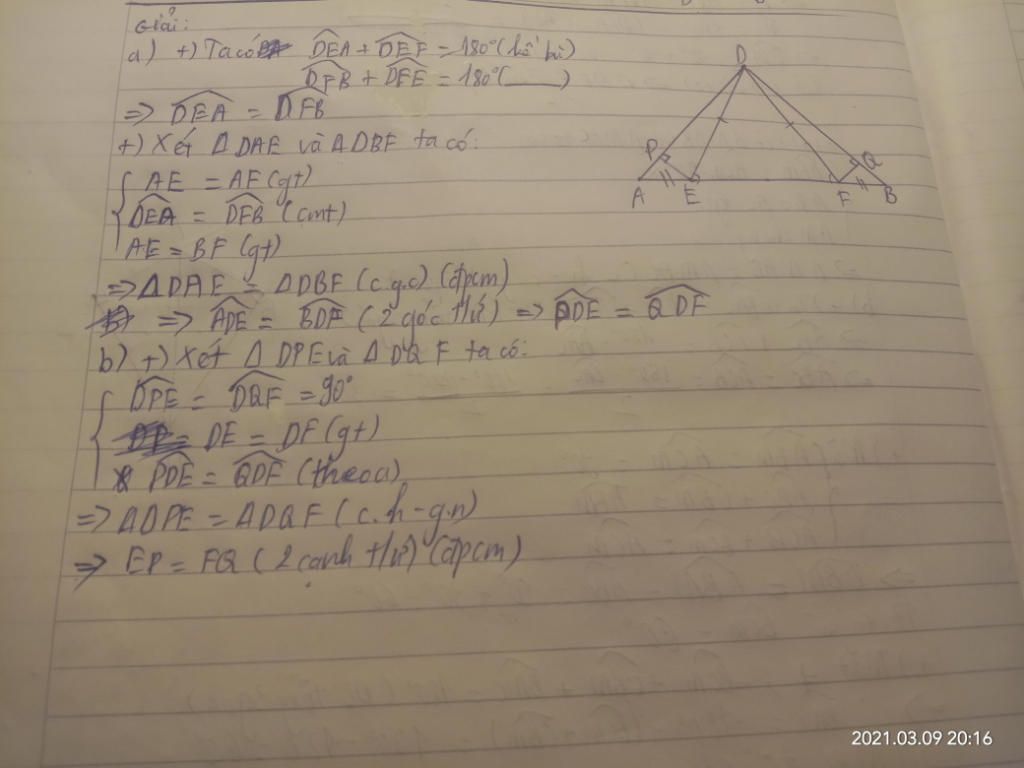 Giải:
a) +) Ta có DEA + DEF = 180° (kề bù)
DFB + DFE = 180° ( )
=> DEA = DFB
+) Xét Δ DAE và Δ DBF ta có:
AE = AF (gt)
DEA = DFB (cmt)
AE = BF (gt)
=> Δ DAE = Δ DBF (c.g.c) (đpcm)
=> ADE = BDF (2 góc t/ứ) => PDE = QDF
b) +) Xét Δ DPE và Δ DQF ta có:
DPE = DQF = 90°
DE = DF (gt)
PDE = QDF (theo a)
=> Δ DPE = Δ DQF (c.h - g.n)
=> EP = FQ (2 cạnh t/ứ) (đpcm)
D
P
Q
A
E
F
B
2021.03.09 20:16